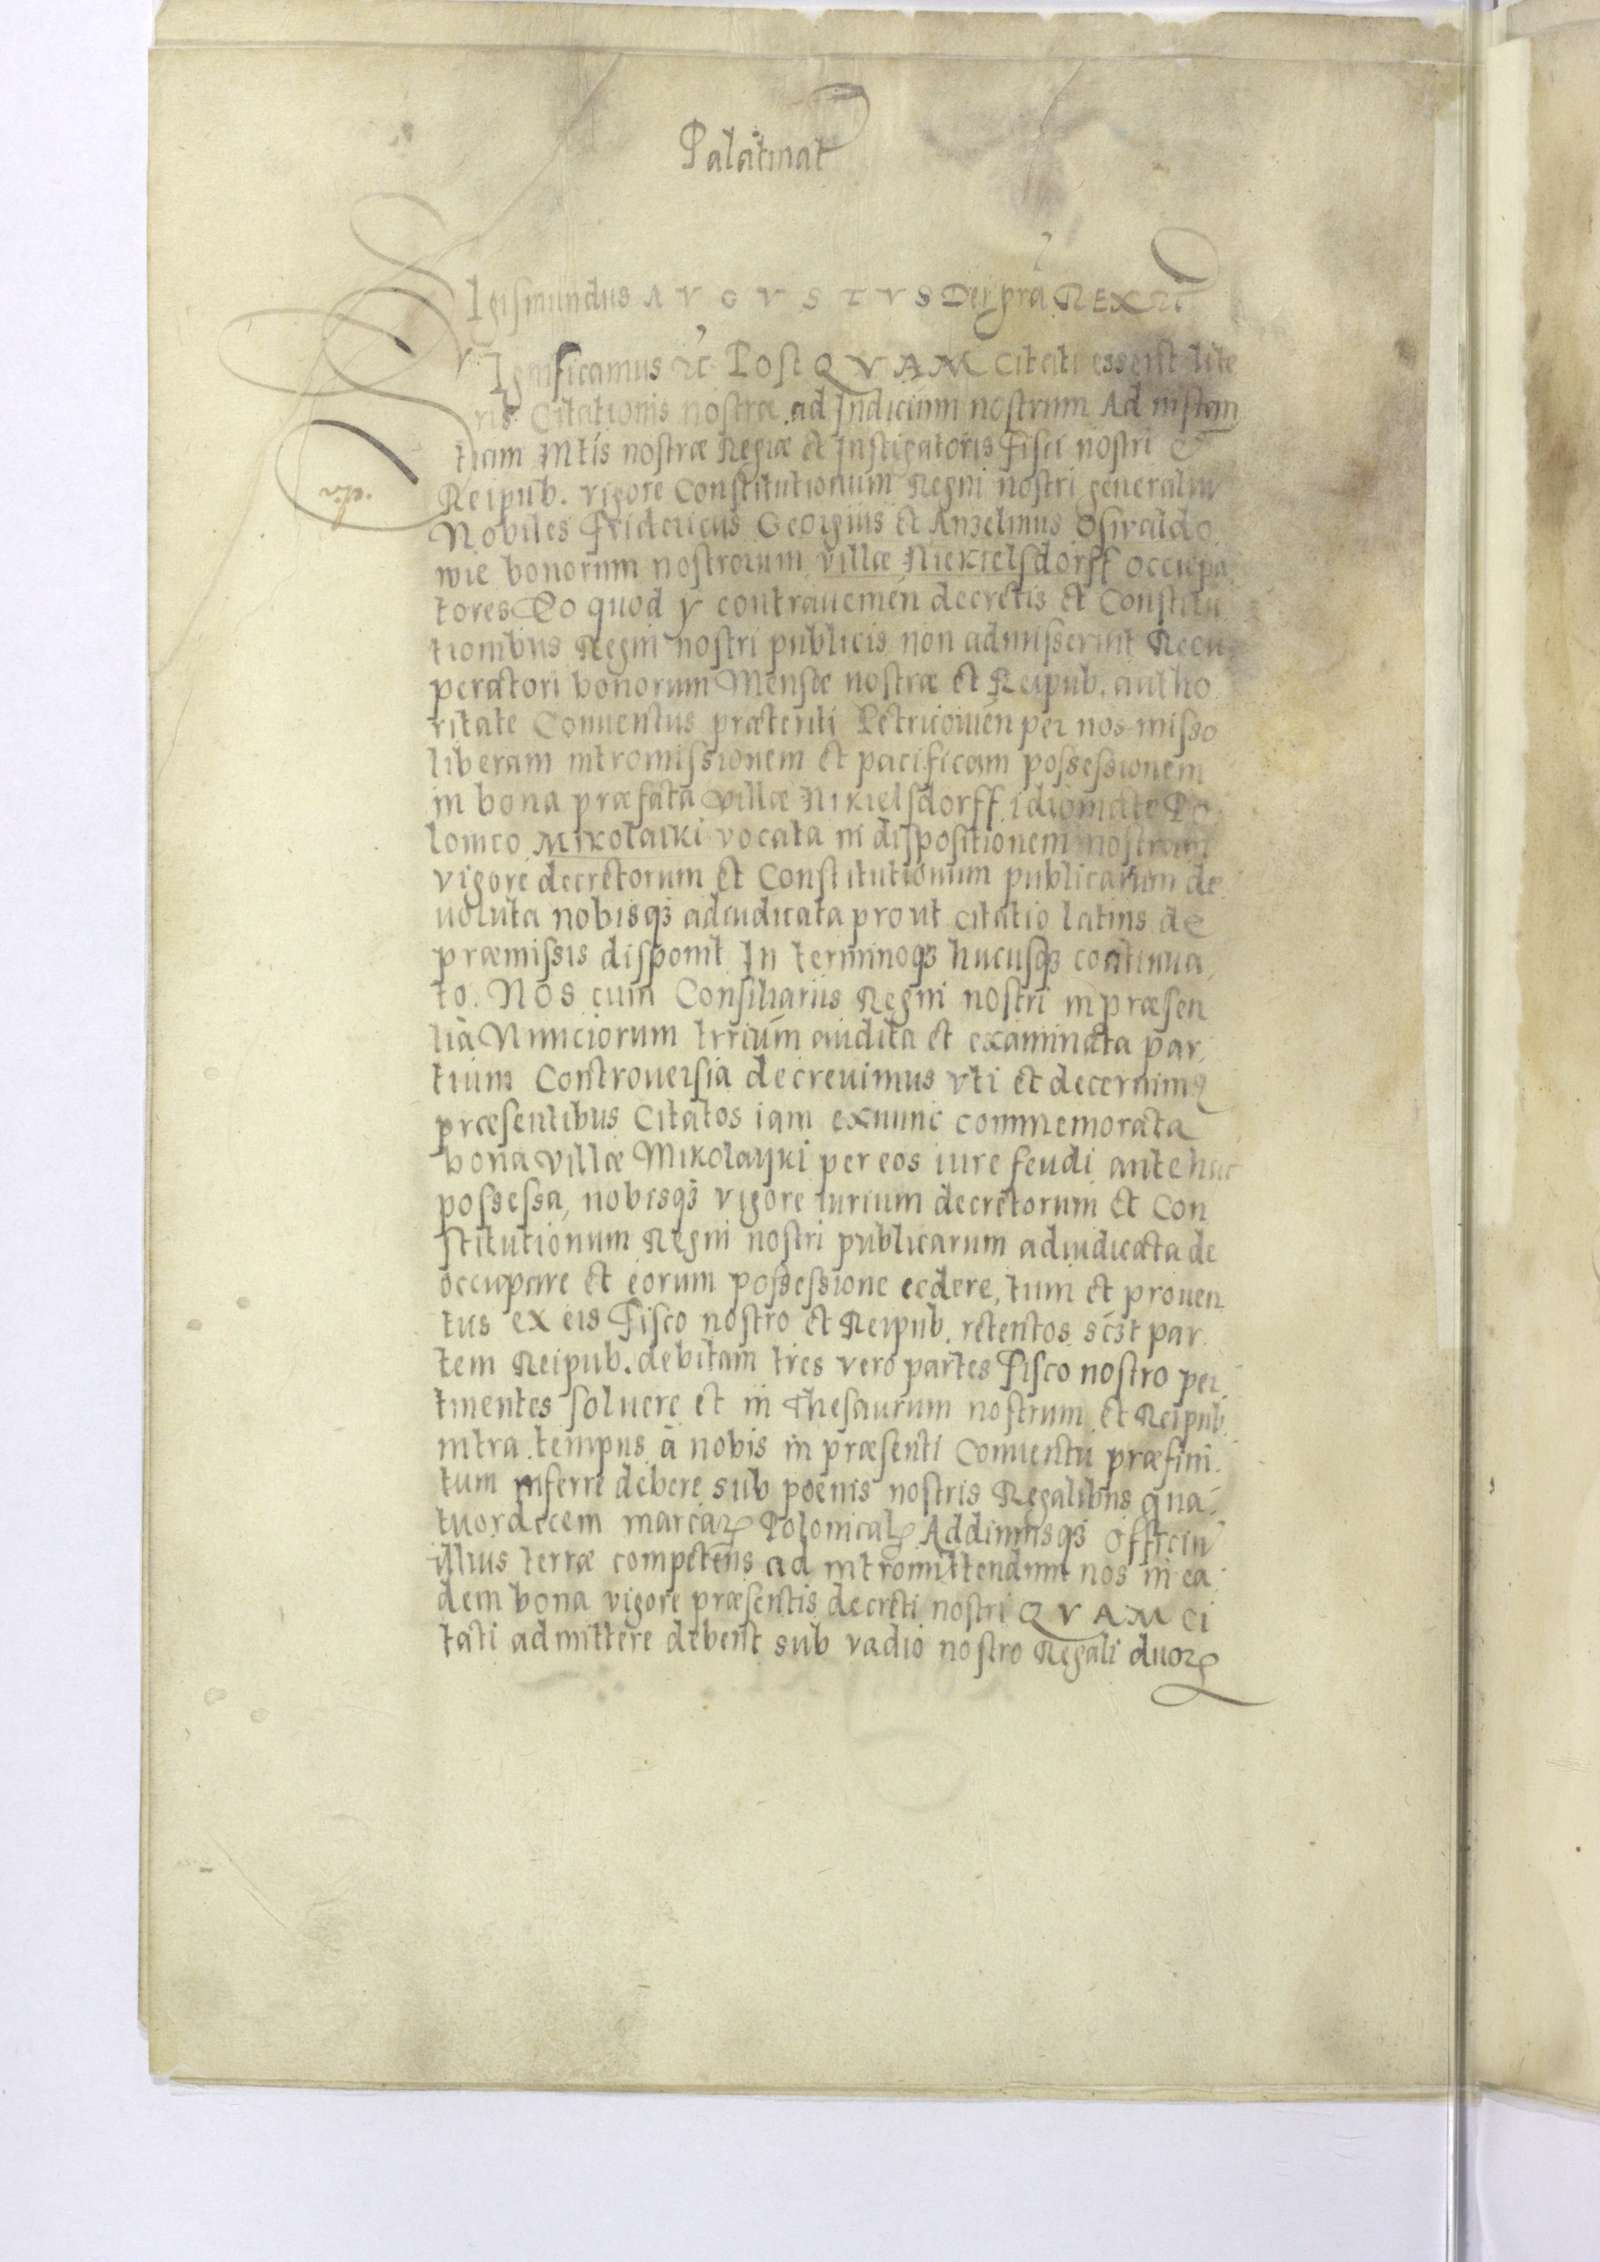 Palatinat
Sigismundus AVGVSTVS Dei gra REX
Significamus etc PostQVAM citati essent lite
ris Citationis nostræ ad Iudicium nostrum Ad instan
tiam Mtis nostræ Regiæ et Instigatoris Fisci nostri &
Reipub. vigore Constitutionum Regni nostri generaliū
Nobiles Fridericus Georgius et Anzelmus Oswaldo
wie bonorum nostrorum villæ Niekielsdorff occupa
tores Eo quod y contrauemēn decretis et Constitu
tionibus Regni nostri publicis non admisserint Recu
peratori bonorum Mensæ nostræ et Reipub. autho
ritate Conuentus præteriti Petricouiēn per nos misso
liberam intromissionem et pacificam possessionem
in bona præfata villæ Nikielsdorff idiomate Po
lonico Mikolaiki vocata in dispositionem nostram
vigore decretorum et Constitutionum publicarum de
uoluta nobisq3 adiudicata prout citatio latius de
præmissis disponit In terminoq3 hucusq3 continua
to. Nos cum Consiliariis Regni nostri in præsen
tia Nunciorum trriūm audita et examinata par
tium Controuersia decreuimus vti et decernimq
præsentibus Citatos iam exnunc commemorata
bona villæ Mikolayki per eos iure feudi antehac
possessa, nobisq3 vigore iurium decretorum et Con
stitutionum Regni nostri publicarum adiudicata de
occupare et eorum possessione cedere, tum et prouen
tus ex eis Fisco nostro et Reipub. retentos sc3t par
tem Reipub. debitam tres vero partes Fisco nostro per
tinentes soluere et in Thesaurum nostrum et Reipub
intra tempus à nobis in præsenti Conuentu præfini
tum inferre debere sub poenis nostris Regalibus qua
tuordecem marcaꝝ Polonicalꝝ Addimusq3 Officiū
illius terræ competēns ad intromittendum nos in ea
dem bona vigore præsentis decreti nostri QVAM ci
tati admittere debent sub vadio nostro Regali duoꝝ